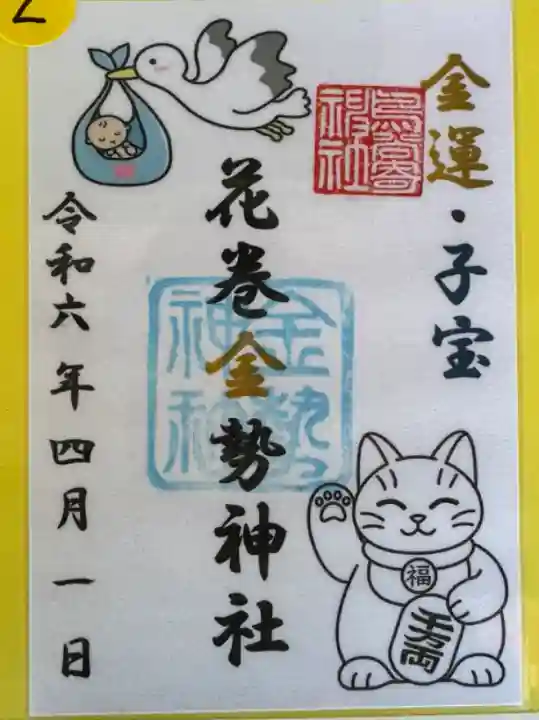 2
金運・子宝
花巻金勢神社
金勢
神社
令和六年四月一日
福
千万両